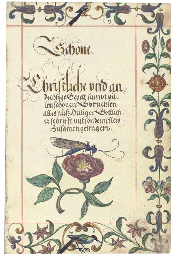 Schöne
Christliche vnd an
dechtige Gebett sambt vi
len schönen Sprüchlen
alles auß Heiliger Göttlich
er schrifft mit sonderm fleis
Zusamen getragen.